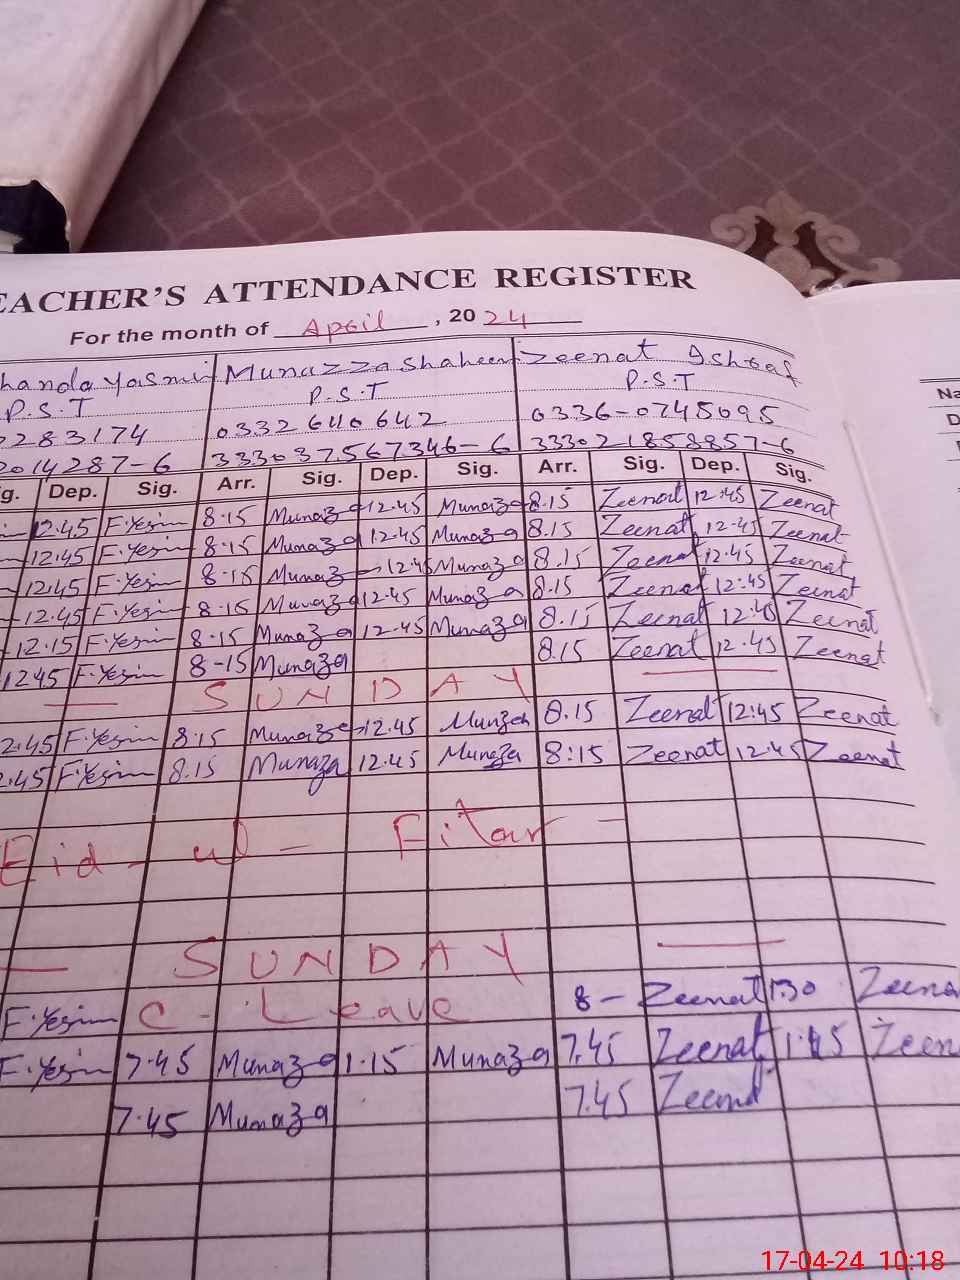 EACHER'S ATTENDANCE REGISTER
For the month of April , 20 24
handa Yasmi Munazza Shaheen Zeenat Ishtaf
P.S.T P.S.T P.S.T
0283174 0332 640 642 0336-0745095
2014287-6 333037567346-6 333021858857-6
g. Dep. Sig. Arr. Sig. Dep. Sig. Arr. Sig. Dep. Sig.
12.45 F.Yesmin 8.15 Munaza 12.45 Munaza 8.15 Zeenat 12:45 Zeenat
12.45 F.Yesmin 8.15 Munaza 12.45 Munaza 8.15 Zeenat 12:45 Zeenat
12.45 F.Yesmin 8.15 Munaza 12.45 Munaza 8.15 Zeenat 12:45 Zeenat
12.45 F.Yesmin 8.15 Munaza 12.45 Munaza 8.15 Zeenat 12:45 Zeenat
12.15 F.Yesmin 8.15 Munaza 12.45 Munaza 8.15 Zeenat 12:45 Zeenat
1245 F.Yesmin 8-15 Munaza 8.15 Zeenat 12:45 Zeenat
— SUNDAY —
2.45 F.Yesmin 8.15 Munaza 12.45 Munzah 8.15 Zeenat 12:45 Zeenat
2.45 F.Yesmin 8.15 Munaza 12.45 Munaza 8:15 Zeenat 12:45 Zeenat
Eid - ul - Fitar -
— SUNDAY —
F.Yesmin C - Leave 8 - Zeenat 1:30 Zeena
F.Yesmin 7.45 Munaza 1.15 Munaza 7.45 Zeenat Zeen
7.45 Munaza 7.45 Zeenat
Na
D
17-04-24 10:18